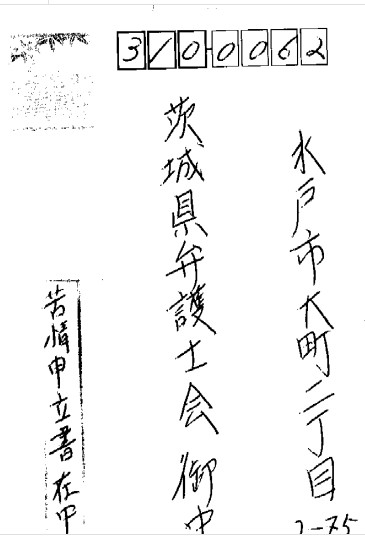 310-0062
水戸市大町二丁目
2-75
茨城県弁護士会 御中
苦情申立書 在中